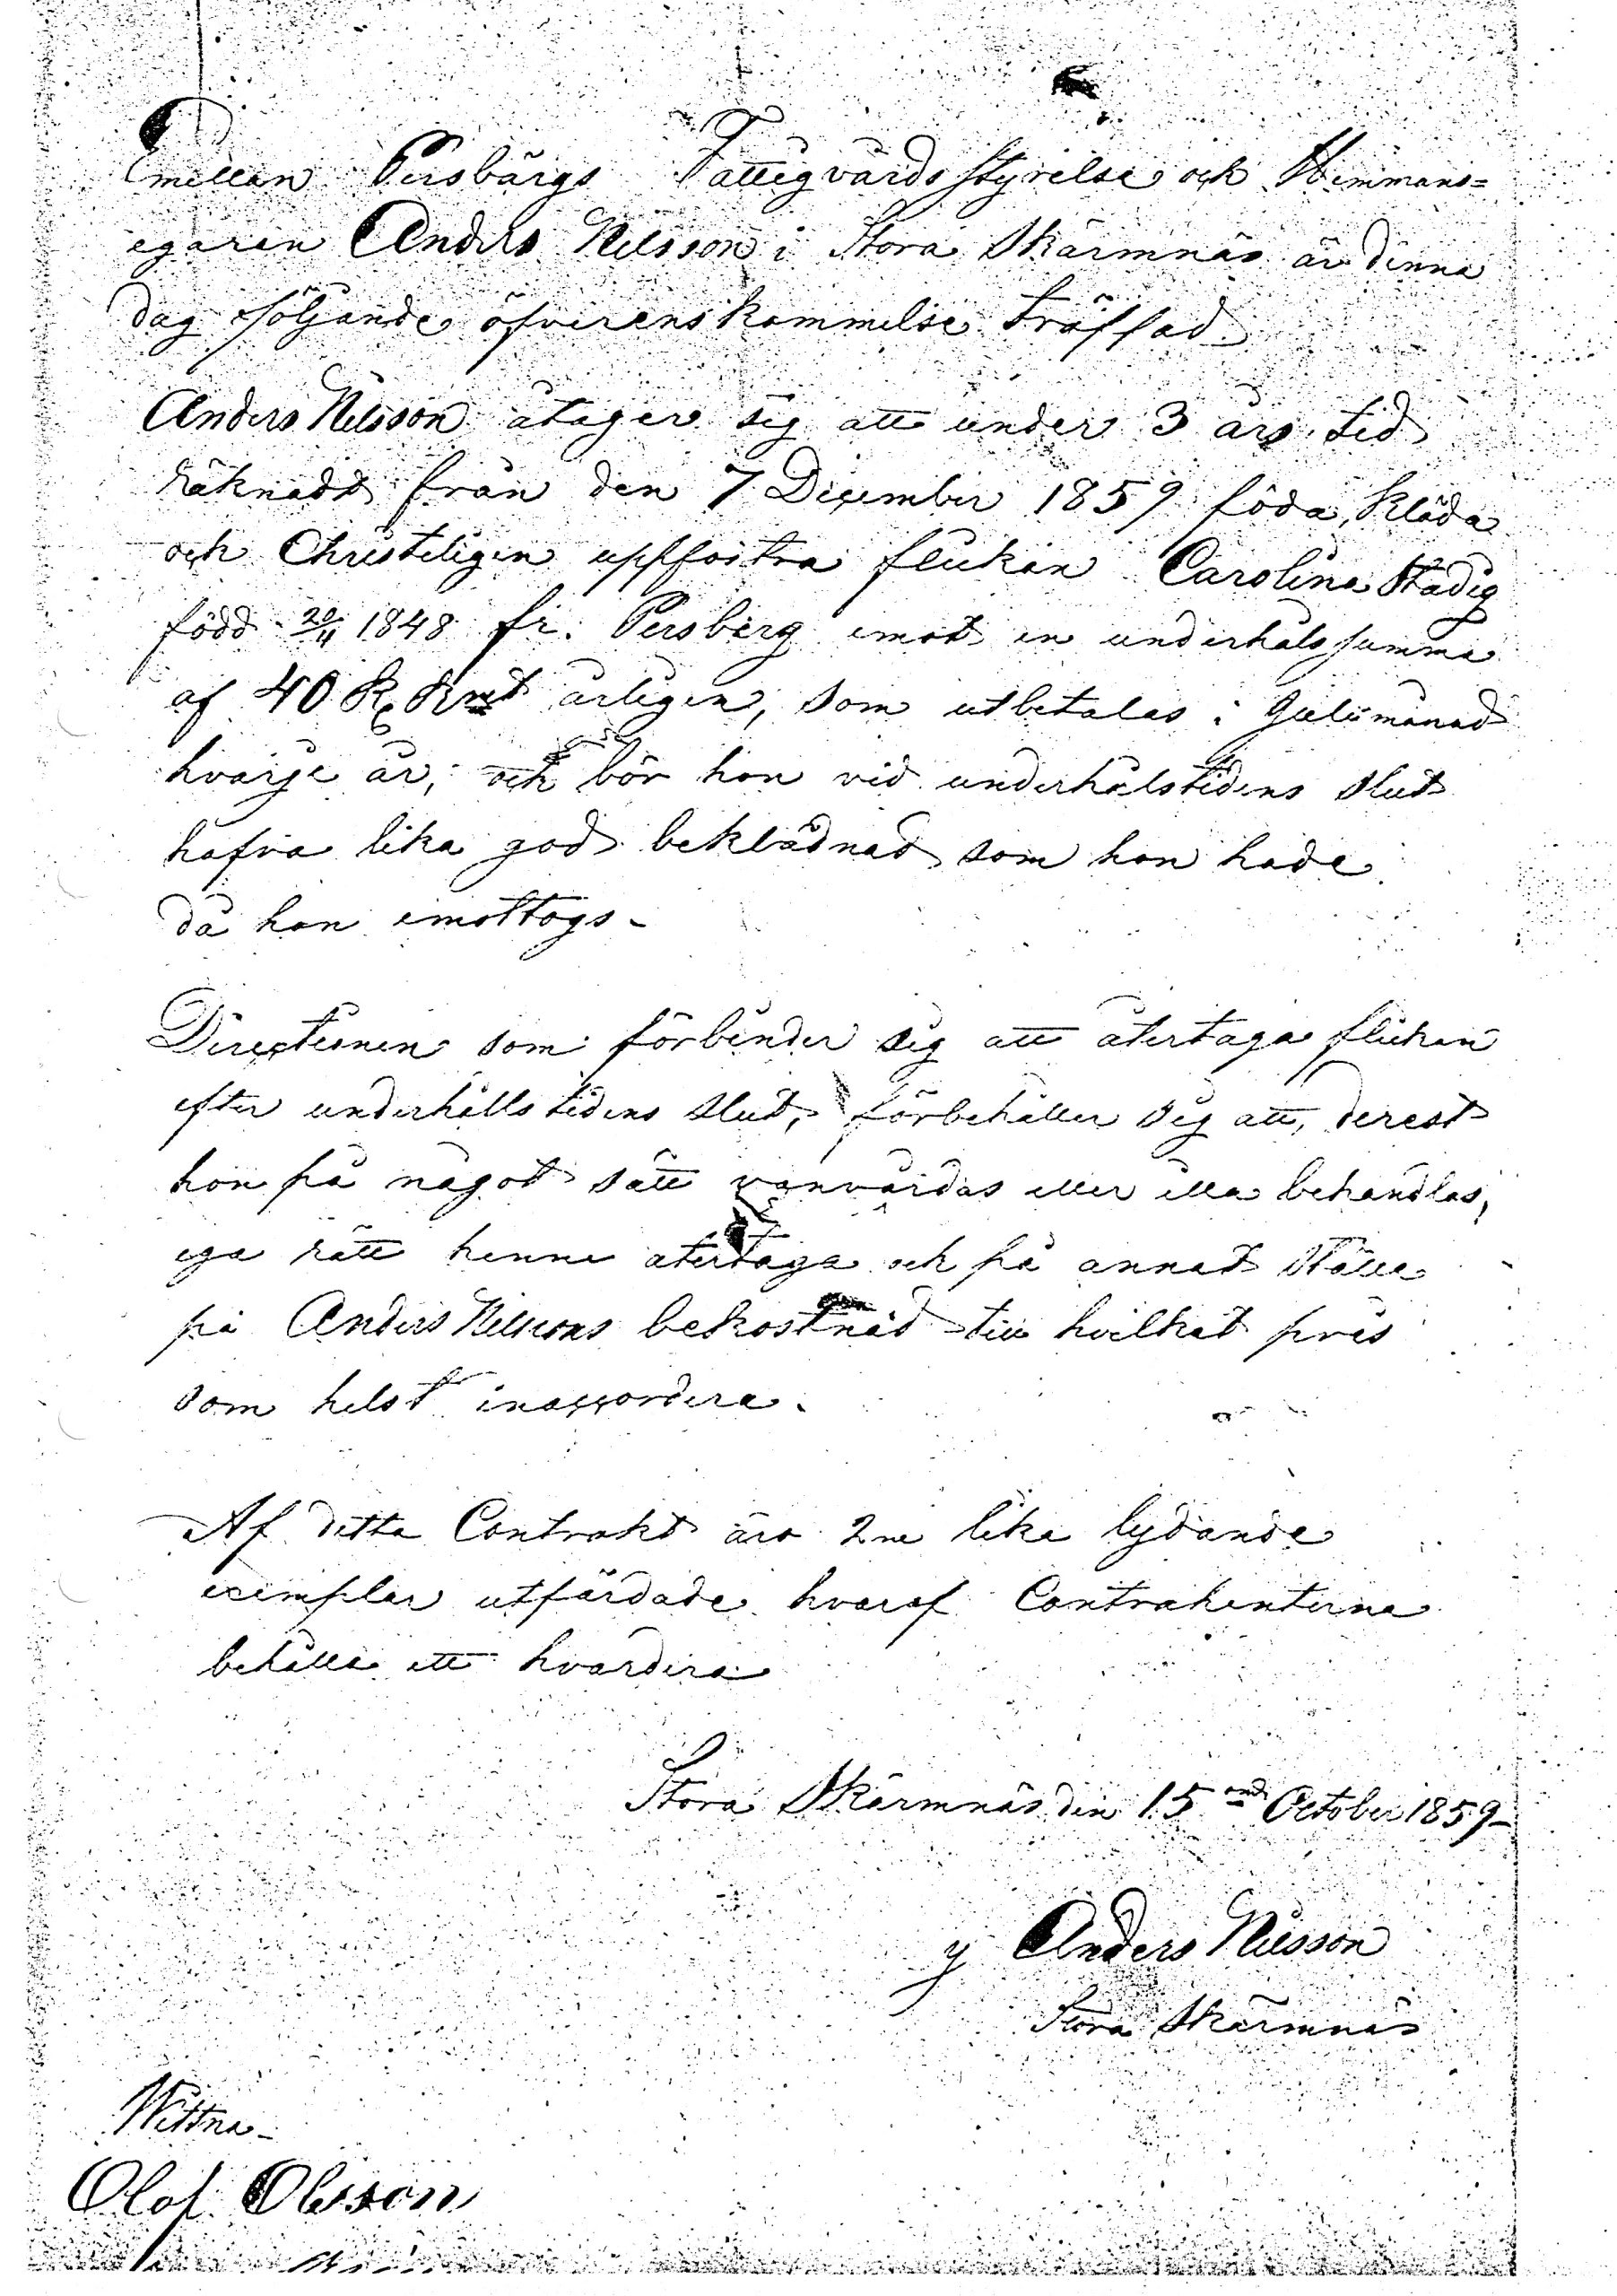 Emellan Persbärgs Fattigvårds styrelse och Hemmans=
egaren Anders Nilsson i Stora Skärmnäs är denna
dag följande öfverenskommelse träffad
Anders Nilsson åtager sig att under 3 års tid
räknadt från den 7 December 1859 föda, kläda
och Christeligen uppfostra flickan Carolina Stadig
född 20/11 1848 fr. Persberg emot en underhåls summa
af 40 Rd Rmt årligen, som utbetalas i Juli månad
hvarje år, och bör hon vid underhålstidens slut
hafva lika god beklädnad som hon hade
då hon emottogs -
Directionen som förbinder sig att återtaga flickan
efter underhålls tidens slut, förbehåller sig att, derest
hon på något sätt vanvårdas eller illa behandlas,
ega rätt henne återtaga och på annat ställe
på Anders Nilssons bekostnad till hvilket pris
som helst inaccordera.
Af detta Contrakt äro 2ne lika lydande
exemplar utfärdade hvaraf Contrahenterna
behålla ett hvardera
Stora Skärmnäs den 15 October 1859 -
Anders Nilsson
Stora Skärmnäs
Wittna -
Olof Olsson